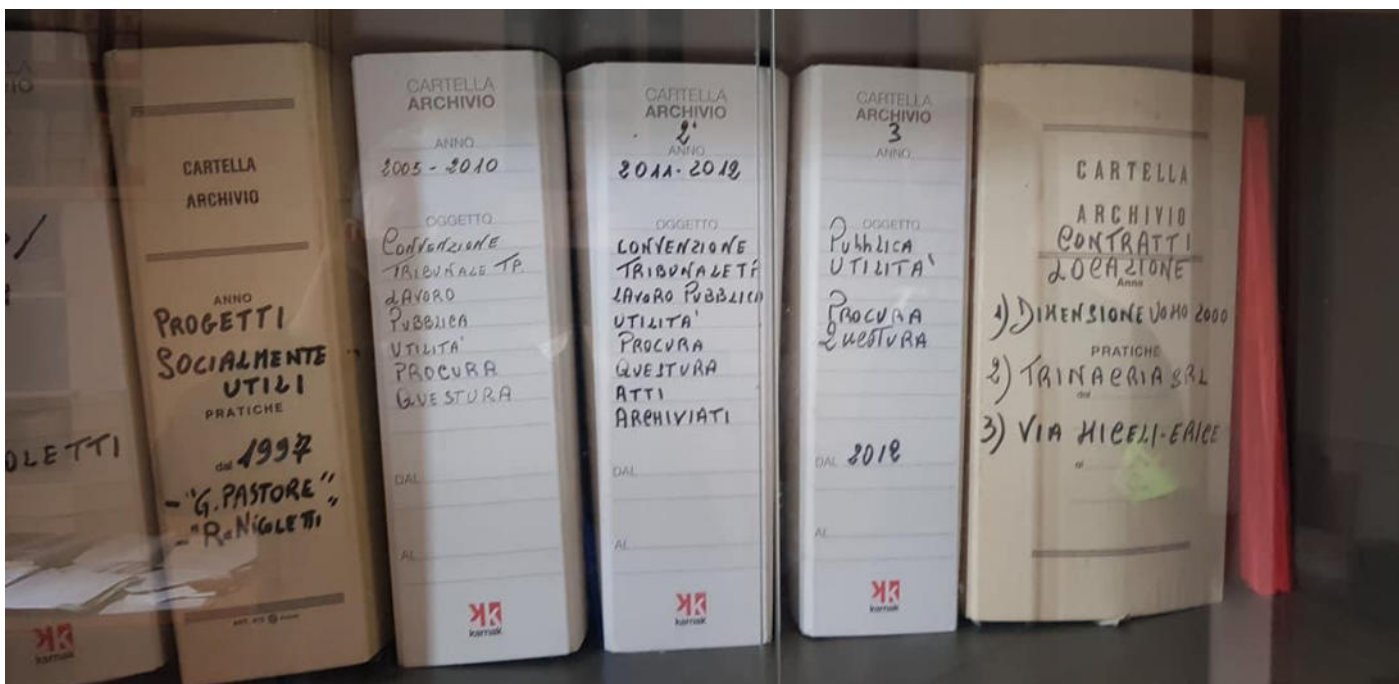 OLETTI
karnak
CARTELLA
ARCHIVIO
ANNO
PROGETTI
SOCIALMENTE
UTILI
PRATICHE
dal 1997
- "G. PASTORE"
- "R. NIGLETTI"
CARTELLA
ARCHIVIO
ANNO
2005 - 2010
OGGETTO
CONVENZIONE
TRIBUNALE TP.
LAVORO
PUBBLICA
UTILITA'
PROCURA
QUESTURA
DAL
AL
karnak
CARTELLA
ARCHIVIO
2°
ANNO
2011 - 2012
OGGETTO
CONVENZIONE
TRIBUNALE TP
LAVORO PUBBLICA
UTILITA'
PROCURA
QUESTURA
ATTI
ARCHIVIATI
DAL
AL
karnak
CARTELLA
ARCHIVIO
3
ANNO
OGGETTO
PUbbLICA
UTILITA'
PROCURA
QUESTURA
DAL 2012
AL
karnak
CARTELLA
ARCHIVIO
CONTRATTI
LOCAZIONE
Anno
1) DIMENSIONE UOMO 2000
PRATICHE
2) TRINACRIA SRL
dal
3) VIA MICELI - ERICE
al